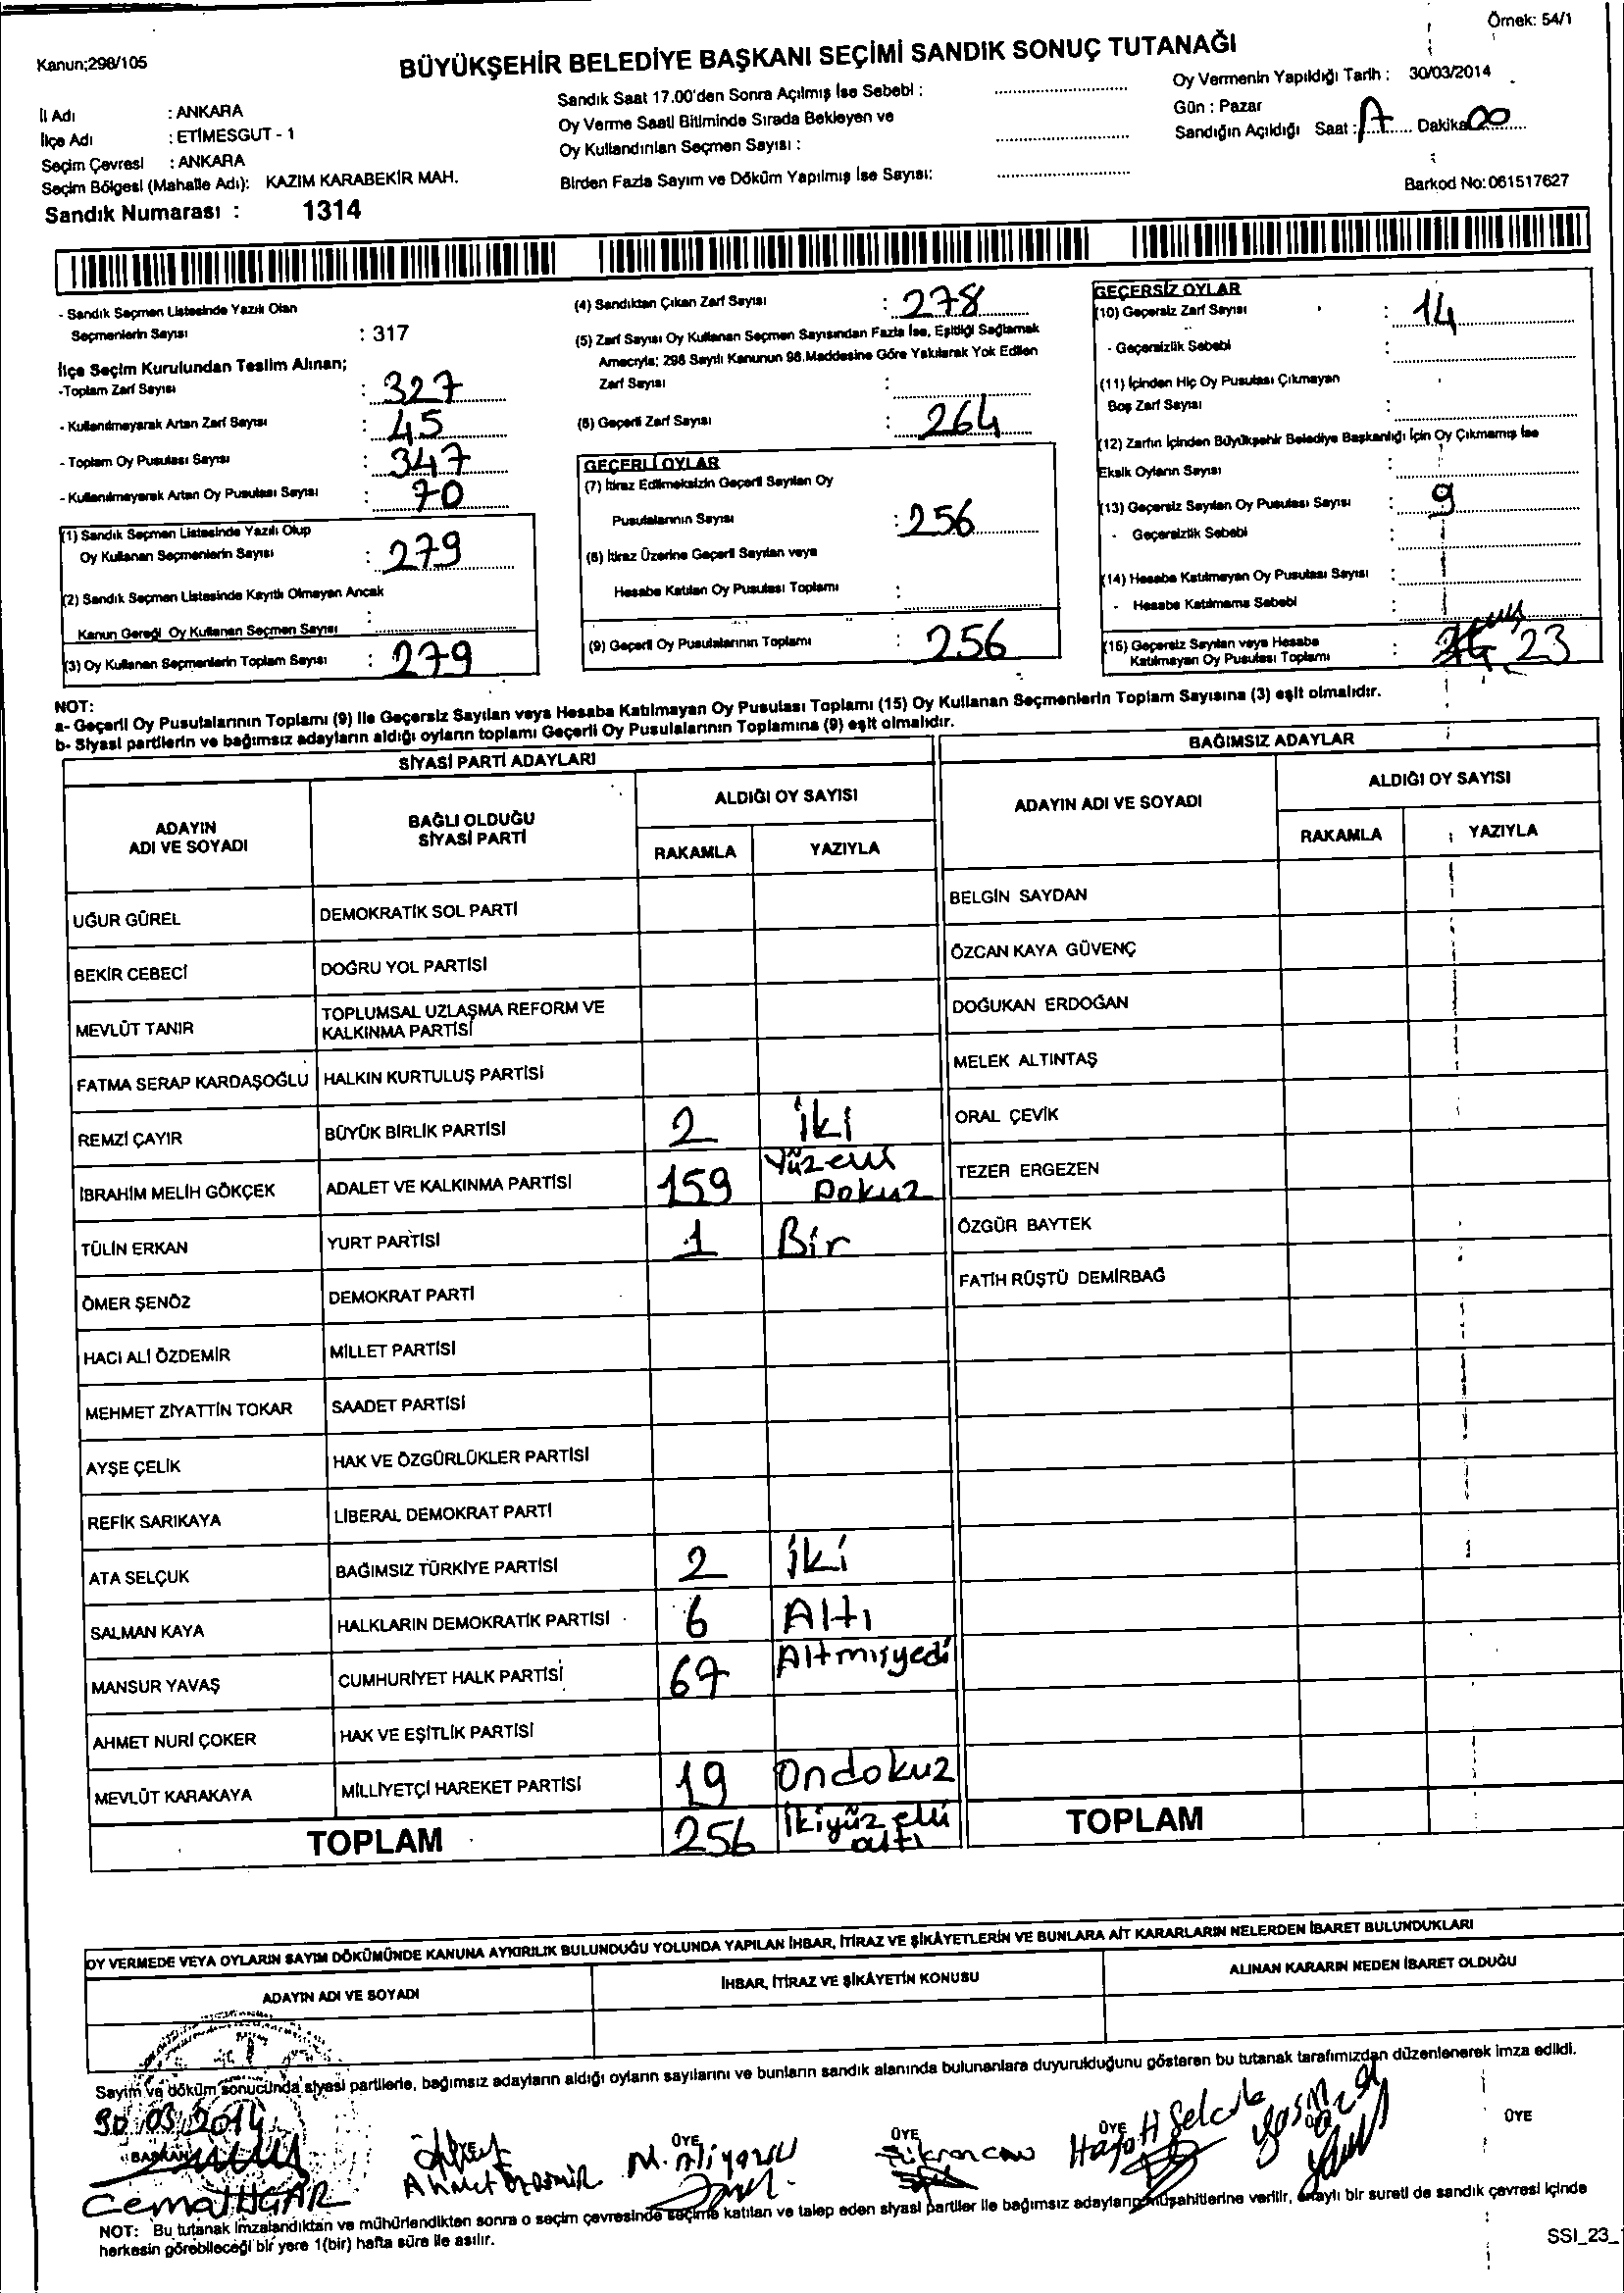 Örnek: 54/1
Kanun;298/105
BÜYÜKŞEHİR BELEDİYE BAŞKANI SEÇİMİ SANDIK SONUÇ TUTANAĞI
İl Adı : ANKARA
İlçe Adı : ETİMESGUT - 1
Seçim Çevresi : ANKARA
Seçim Bölgesi (Mahalle Adı): KAZIM KARABEKİR MAH.
Sandık Numarası : 1314
Sandık Saat 17.00'den Sonra Açılmış İse Sebebi :
Oy Verme Saati Bitiminde Sırada Bekleyen ve
Oy Kullandırılan Seçmen Sayısı :
Birden Fazla Sayım ve Döküm Yapılmış İse Sayısı:
Oy Vermenin Yapıldığı Tarih : 30/03/2014
Gün : Pazar
Sandığın Açıldığı Saat : 17 Dakika 00
Barkod No: 061517627
- Sandık Seçmen Listesinde Yazılı Olan
Seçmenlerin Sayısı : 317
İlçe Seçim Kurulundan Teslim Alınan;
-Toplam Zarf Sayısı : 327
- Kullanılmayarak Artan Zarf Sayısı : 45
- Toplam Oy Pusulası Sayısı : 347
- Kullanılmayarak Artan Oy Pusulası Sayısı : 70
(1) Sandık Seçmen Listesinde Yazılı Olup
Oy Kullanan Seçmenlerin Sayısı : 279
(2) Sandık Seçmen Listesinde Kayıtlı Olmayan Ancak
Kanun Gereği Oy Kullanan Seçmen Sayısı :
(3) Oy Kullanan Seçmenlerin Toplam Sayısı : 279
(4) Sandıktan Çıkan Zarf Sayısı : 278
(5) Zarf Sayısı Oy Kullanan Seçmen Sayısından Fazla İse, Eşitliği Sağlamak
Amacıyla; 298 Sayılı Kanunun 98.Maddesine Göre Yakılarak Yok Edilen
Zarf Sayısı :
(6) Geçerli Zarf Sayısı : 264
GEÇERLİ OYLAR
(7) İtiraz Edilmeksizin Geçerli Sayılan Oy
Pusulalarının Sayısı : 256
(8) İtiraz Üzerine Geçerli Sayılan veya
Hesaba Katılan Oy Pusulası Toplamı :
(9) Geçerli Oy Pusulalarının Toplamı : 256
GEÇERSİZ OYLAR
(10) Geçersiz Zarf Sayısı : 14
- Geçersizlik Sebebi :
(11) İçinden Hiç Oy Pusulası Çıkmayan
Boş Zarf Sayısı :
(12) Zarfın İçinden Büyükşehir Belediye Başkanlığı İçin Oy Çıkmamış İse
Eksik Oyların Sayısı :
(13) Geçersiz Sayılan Oy Pusulası Sayısı : 9
- Geçersizlik Sebebi :
(14) Hesaba Katılmayan Oy Pusulası Sayısı :
- Hesaba Katılmama Sebebi :
(15) Geçersiz Sayılan veya Hesaba
Katılmayan Oy Pusulası Toplamı : 23
NOT:
a- Geçerli Oy Pusulalarının Toplamı (9) ile Geçersiz Sayılan veya Hesaba Katılmayan Oy Pusulası Toplamı (15) Oy Kullanan Seçmenlerin Toplam Sayısına (3) eşit olmalıdır.
b- Siyasi partilerin ve bağımsız adayların aldığı oyların toplamı Geçerli Oy Pusulalarının Toplamına (9) eşit olmalıdır.
SİYASİ PARTİ ADAYLARI
ADAYIN ADI VE SOYADI
BAĞLI OLDUĞU SİYASİ PARTİ
ALDIĞI OY SAYISI
RAKAMLA YAZIYLA
UĞUR GÜREL DEMOKRATİK SOL PARTİ
BEKİR CEBECİ DOĞRU YOL PARTİSİ
MEVLÜT TANIR TOPLUMSAL UZLAŞMA REFORM VE
KALKINMA PARTİSİ
FATMA SERAP KARDAŞOĞLU HALKIN KURTULUŞ PARTİSİ
REMZİ ÇAYIR BÜYÜK BİRLİK PARTİSİ 2 iki
İBRAHİM MELİH GÖKÇEK ADALET VE KALKINMA PARTİSİ 159 Yüzelli
Dokuz
TÜLİN ERKAN YURT PARTİSİ 1 Bir
ÖMER ŞENÖZ DEMOKRAT PARTİ
HACI ALİ ÖZDEMİR MİLLET PARTİSİ
MEHMET ZİYATTİN TOKAR SAADET PARTİSİ
AYŞE ÇELİK HAK VE ÖZGÜRLÜKLER PARTİSİ
REFİK SARIKAYA LİBERAL DEMOKRAT PARTİ
ATA SELÇUK BAĞIMSIZ TÜRKİYE PARTİSİ 2 iki
SALMAN KAYA HALKLARIN DEMOKRATİK PARTİSİ 6 Altı
MANSUR YAVAŞ CUMHURİYET HALK PARTİSİ 67 Altmışyedi
AHMET NURİ ÇOKER HAK VE EŞİTLİK PARTİSİ
MEVLÜT KARAKAYA MİLLİYETÇİ HAREKET PARTİSİ 19 Ondokuz
TOPLAM 256 İkiyüz elli
altı
BAĞIMSIZ ADAYLAR
ADAYIN ADI VE SOYADI
ALDIĞI OY SAYISI
RAKAMLA YAZIYLA
BELGİN SAYDAN
ÖZCAN KAYA GÜVENÇ
DOĞUKAN ERDOĞAN
MELEK ALTINTAŞ
ORAL ÇEVİK
TEZER ERGEZEN
ÖZGÜR BAYTEK
FATİH RÜŞTÜ DEMİRBAĞ
TOPLAM
OY VERMEDE VEYA OYLARIN SAYIM DÖKÜMÜNDE KANUNA AYKIRILIK BULUNDUĞU YOLUNDA YAPILAN İHBAR, İTİRAZ VE ŞİKÂYETLERİN VE BUNLARA AİT KARARLARIN NELERDEN İBARET BULUNDUKLARI
ADAYIN ADI VE SOYADI
İHBAR, İTİRAZ VE ŞİKÂYETİN KONUSU
ALINAN KARARIN NEDEN İBARET OLDUĞU
Sayım ve döküm sonucunda siyasi partilerle, bağımsız adayların aldığı oyların sayılarını ve bunların sandık alanında bulunanlara duyurulduğunu gösteren bu tutanak tarafımızdan düzenlenerek imza edildi.
30.03.2014
BAŞKAN ÜYE ÜYE ÜYE ÜYE ÜYE
Cemal UÇAR
NOT: Bu tutanak imzalandıktan ve mühürlendikten sonra o seçim çevresinde seçime katılan ve talep eden siyasi partiler ile bağımsız adayların müşahitlerine verilir, onaylı bir sureti de sandık çevresi içinde
herkesin görebileceği bir yere 1(bir) hafta süre ile asılır.
SSI_23_